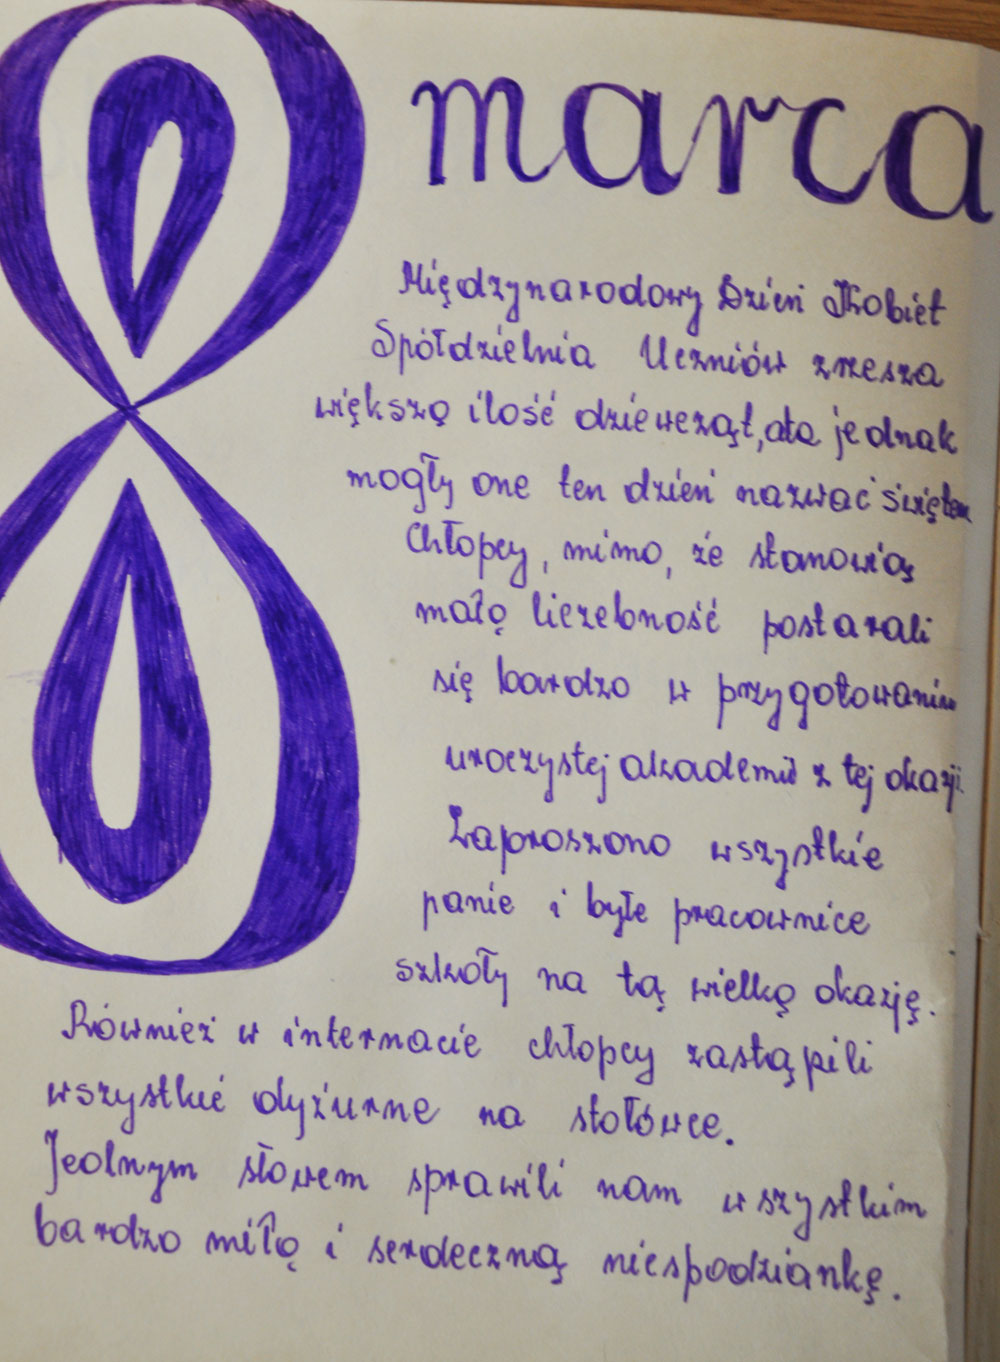 8 marca
Międzynarodowy Dzień Kobiet
Spółdzielnia Uczniów zrzesza
większą ilość dziewcząt, ale jednak
mogły one ten dzień nazwać świętem
Chłopcy, mimo, że stanowią
małą liczebność postarali
się bardzo w przygotowaniu
uroczystej akademii z tej okazji.
Zaproszono wszystkie
panie i byłe pracownice
szkoły na tą wielką okazję.
Również w internacie chłopcy zastąpili
wszystkie dyżurne na stołówce.
Jednym słowem sprawili nam wszystkim
bardzo miłą i serdeczną niespodziankę.